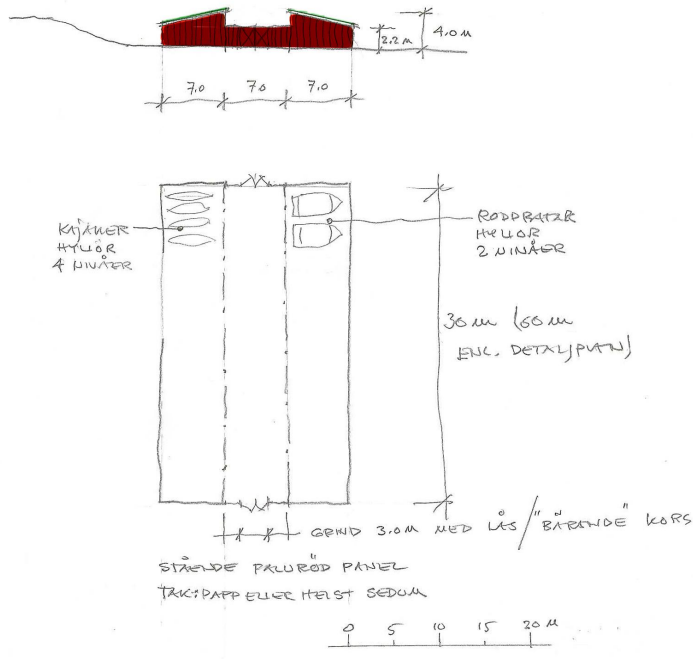 4.0 M
2.2 M
7.0 7.0 7.0
KAJAKER
HYLLOR
4 NIVÅER
RODDBÅTAR
HYLLOR
2 NIVÅER
30 m (60 m
ENL. DETALJPLAN)
GRIND 3.0 M MED LÅS / "BÄRANDE" KORS
STÅENDE FALURÖD PANEL
TAK: PAPP ELLER HELST SEDUM
0 5 10 15 20 M